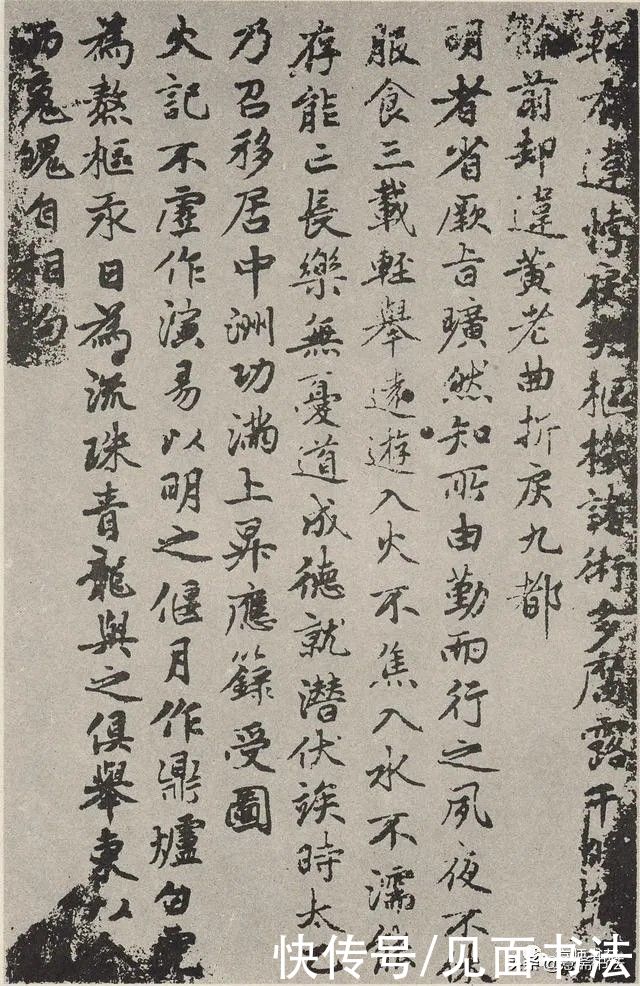 有違悖失枢機諸術多露千
餘前却違黃老曲折戾九都
明者省厥旨曠然知所由勤而行之夙夜不休
服食三載輕舉遠遊入火不焦入水不濡能
存能亡長樂無憂道成德就潛伏俟時太乙
乃召移居中洲功滿上昇應籙受圖
火記不虛作演易以明之偃月作鼎爐白虎
為熬樞汞日為流珠青龍與之俱舉東以
西魂魄自相拘
快传号/见面书法